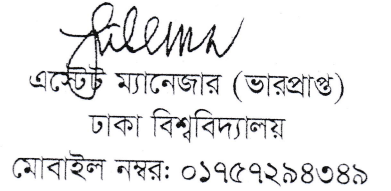 এস্টেট ম্যানেজার (ভারপ্রাপ্ত)
ঢাকা বিশ্ববিদ্যালয়
মোবাইল নম্বর: ০১৭৫৭২৯৪৩৪৯